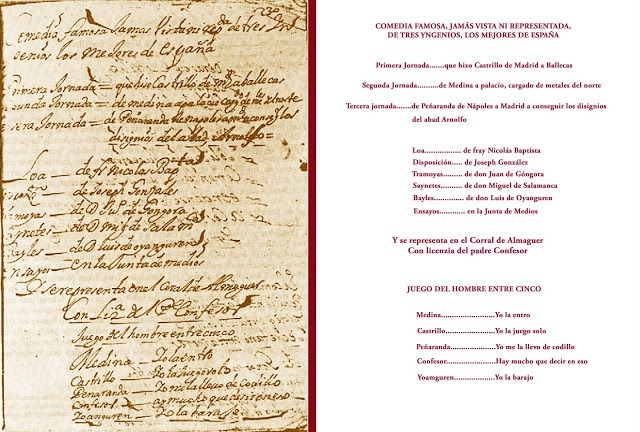 Comedia famosa Jamas Vista ni rep da de tres
genios los Mejores de España
Primera Jornada = que hiso Castrillo de M a ballecas
Jornada = de medina a palacio cargdo de m del norte
Jornada = de Peñaranda de napoles a m a conseg los
disignios del abad Arnolfo =
Loa — de fr Nicolas Bap ta
de Joseph Gonzales
de D Ju de Gongora
de D mig de Salam
Bayles — de D luis de oyanguren
ensayos — en la Junta de medios
Y se representa en el Coral de Almaguer
Con Liz a del P Confesor
Juego del hombre entre cinco
Medina — Yo la entro
Castrillo — Yo la juego solo
Peñaranda — Yo me la llevo de Codillo
Confesor — Ay mucho que desir en eso
Yoanguren — Yo la barajo
COMEDIA FAMOSA, JAMÁS VISTA NI REPRESENTADA,
DE TRES YNGENIOS, LOS MEJORES DE ESPAÑA
Primera Jornada.......que hizo Castrillo de Madrid a Ballecas
Segunda Jornada..........de Medina a palacio, cargado de metales del norte
Tercera jornada.......de Peñaranda de Nápoles a Madrid a conseguir los disignios
del abad Arnolfo
Loa.................. de fray Nicolás Baptista
Disposición..... de Joseph González
Tramoyas......... de don Juan de Góngora
Saynetes........... de don Miguel de Salamanca
Bayles.............. de don Luis de Oyanguren
Ensayos............ en la Junta de Medios
Y se representa en el Corral de Almaguer
Con licenzia del padre Confesor
JUEGO DEL HOMBRE ENTRE CINCO
Medina.....................Yo la entro
Castrillo....................Yo la juego solo
Peñaranda..................Yo me la llevo de codillo
Confesor....................Hay mucho que decir en eso
Yoamguren................Yo la barajo